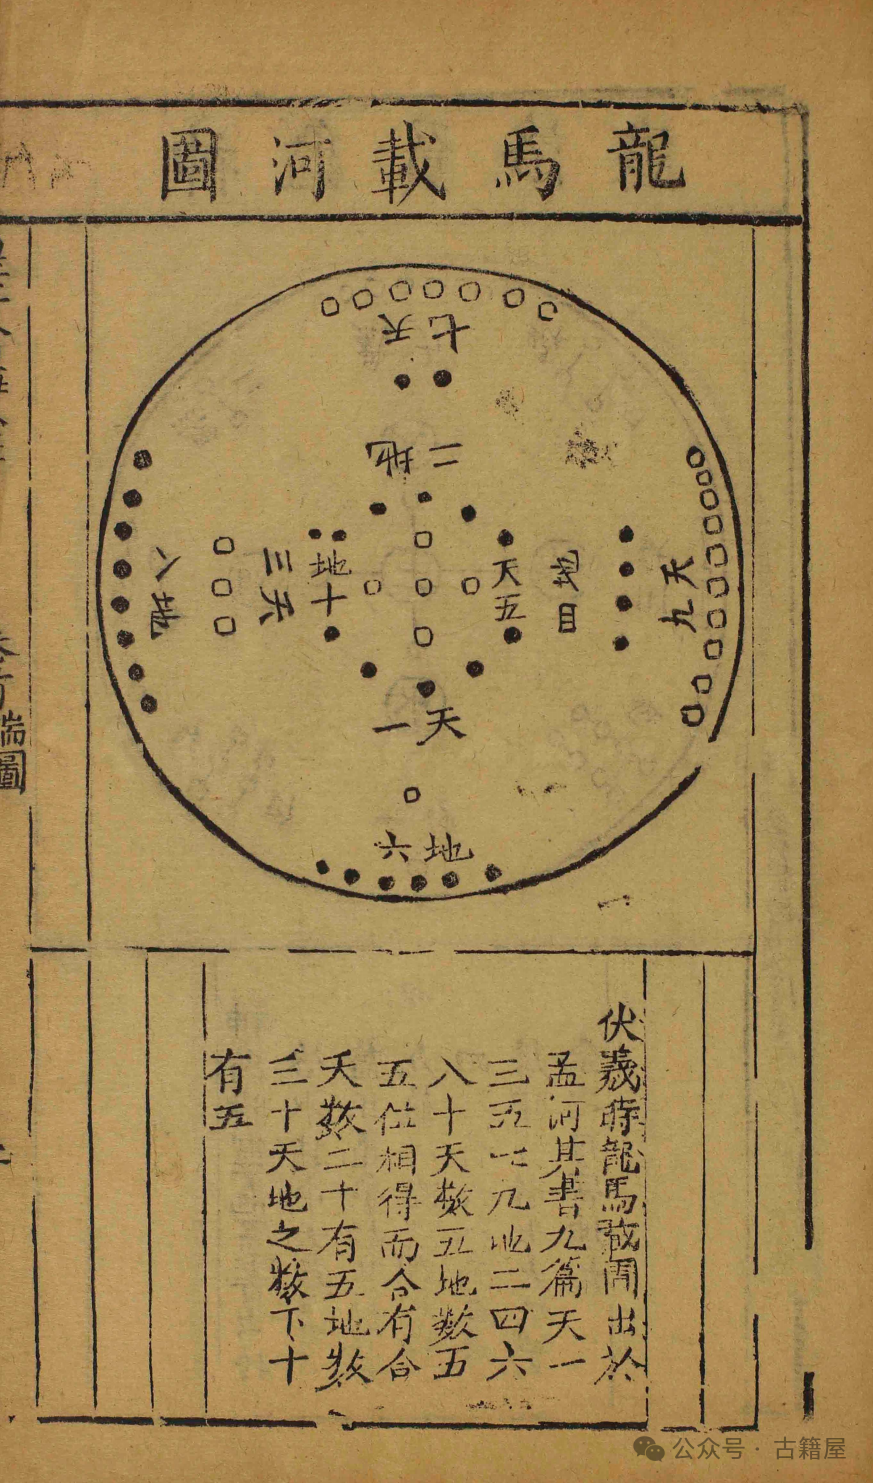 龍馬載河圖
天七
地二
天九
天五
地十
天三
地八
天一
地六
伏羲時龍馬載圖出於
孟河其書九篇天一
三五七九地二四六
八十天數五地數五
五位相得而合有合
天數二十有五地數
三十天地之數下十
有五
公众号 · 古籍屋